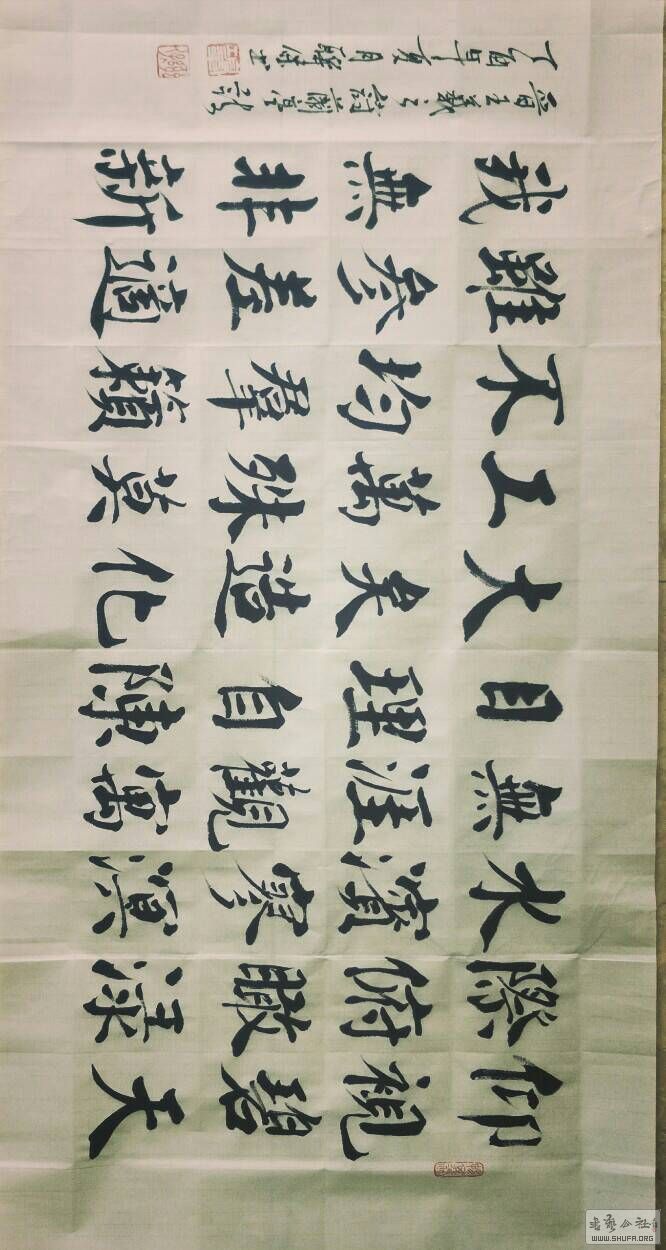 仰視碧天
際俯瞰淥
水濱寥溟
無涯觀寓
目理自陳
大矣造化
工萬殊莫
不均羣籟
雖參差適
我無非新
晉王羲之蘭亭詩
丁酉年夏月書
书艺公社
WWW.SHUFA.ORG